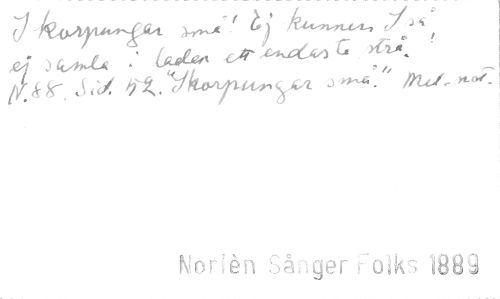 I korpungar små! Ej kunnen I så
ej samla i ladan ett endaste strå!
N. 88. Sid. 52. "I korpungar små." Med not.
Norlèn Sånger Folks 1889